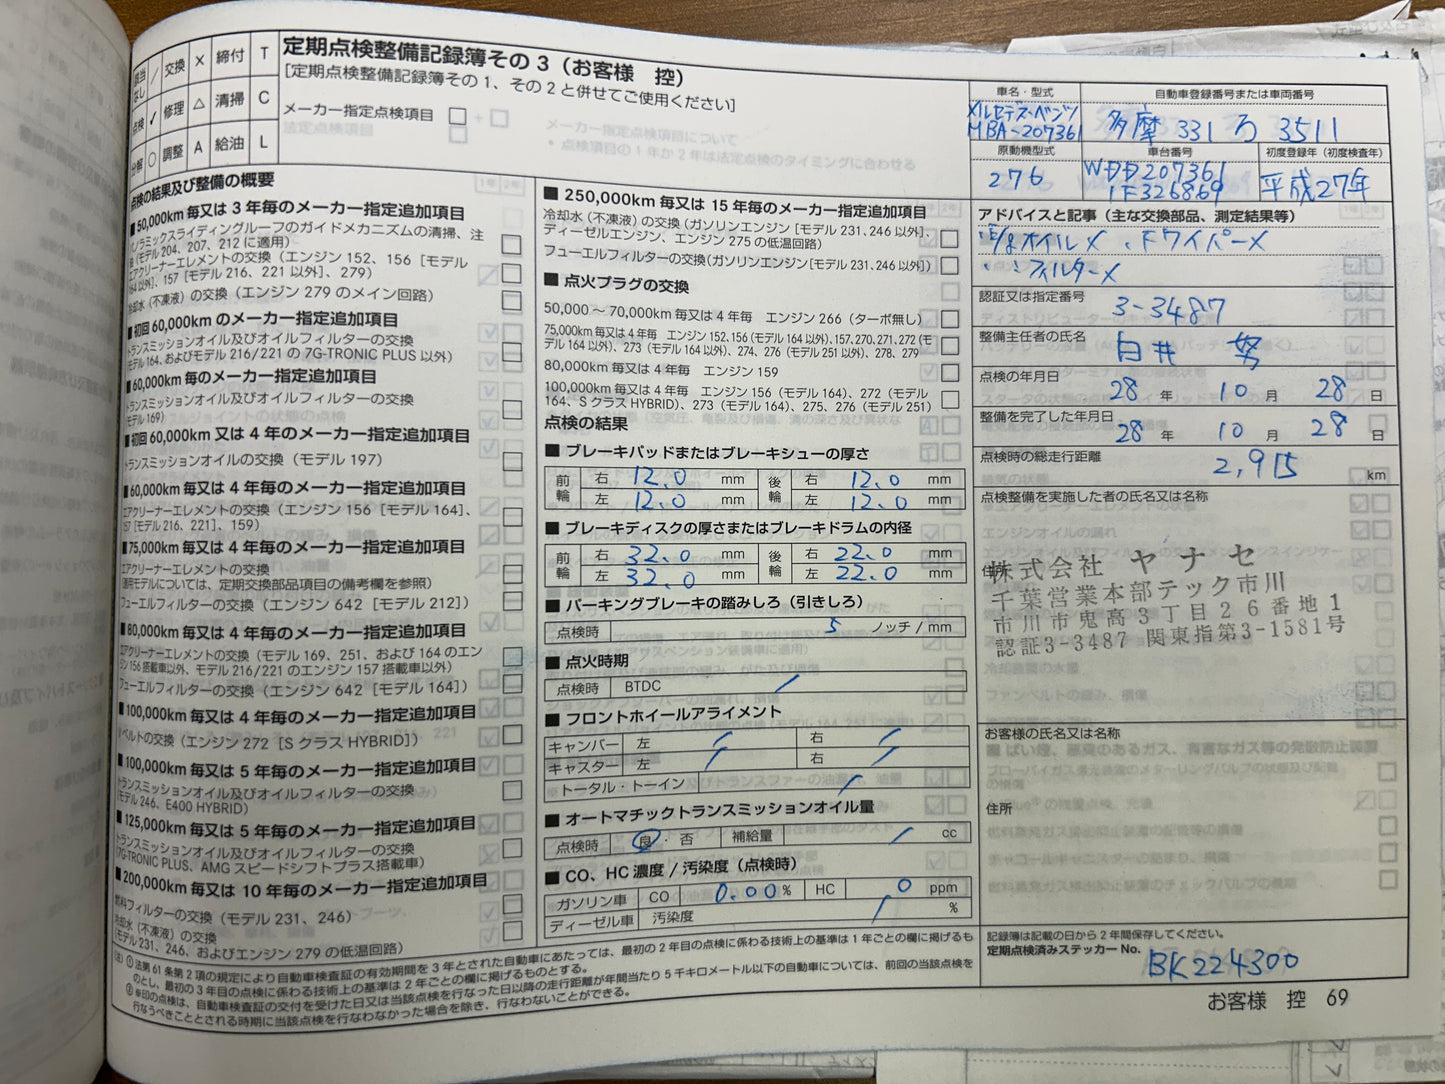 定期点検整備記録簿その 3（お客様　控）
[定期点検整備記録簿その 1、その 2 と併せてご使用ください]
該当なし / 交換 × 締付 T
点検 ✓ 修理 △ 清掃 C
分解 ○ 調整 A 給油 L
メーカー指定点検項目
点検の結果及び整備の概要
■ 50,000km 毎又は 3 年毎のメーカー指定追加項目
パノラミックスライディングルーフのガイドメカニズムの清掃、注
(モデル 204、207、212 に適用)
エアクリーナーエレメントの交換（エンジン 152、156［モデル
164 以外］、157［モデル 216、221 以外］、279）
冷却水（不凍液）の交換（エンジン 279 のメイン回路）
■ 初回 60,000km のメーカー指定追加項目
トランスミッションオイル及びオイルフィルターの交換
(モデル 164、およびモデル 216/221 の 7G-TRONIC PLUS 以外)
■ 60,000km 毎のメーカー指定追加項目
トランスミッションオイル及びオイルフィルターの交換
(モデル 169)
■ 初回 60,000km 又は 4 年のメーカー指定追加項目
トランスミッションオイルの交換（モデル 197）
■ 60,000km 毎又は 4 年毎のメーカー指定追加項目
エアクリーナーエレメントの交換（エンジン 156［モデル 164］、
157［モデル 216、221］、159）
■ 75,000km 毎又は 4 年毎のメーカー指定追加項目
エアクリーナーエレメントの交換
(適用モデルについては、定期交換部品項目の備考欄を参照)
フューエルフィルターの交換（エンジン 642［モデル 212］）
■ 80,000km 毎又は 4 年毎のメーカー指定追加項目
エアクリーナーエレメントの交換（モデル 169、251、および 164 のエン
ジン 156 搭載車以外、モデル 216/221 のエンジン 157 搭載車以外）
フューエルフィルターの交換（エンジン 642［モデル 164］）
■ 100,000km 毎又は 4 年毎のメーカー指定追加項目
Vベルトの交換（エンジン 272［S クラス HYBRID］）
■ 100,000km 毎又は 5 年毎のメーカー指定追加項目
トランスミッションオイル及びオイルフィルターの交換
(モデル 246、E400 HYBRID)
■ 125,000km 毎又は 5 年毎のメーカー指定追加項目
トランスミッションオイル及びオイルフィルターの交換
(7G-TRONIC PLUS、AMG スピードシフトプラス搭載車)
■ 200,000km 毎又は 10 年毎のメーカー指定追加項目
燃料フィルターの交換（モデル 231、246）
冷却水（不凍液）の交換
(モデル 231、246、およびエンジン 279 の低温回路)
■ 250,000km 毎又は 15 年毎のメーカー指定追加項目
冷却水（不凍液）の交換（ガソリンエンジン［モデル 231、246 以外］、
ディーゼルエンジン、エンジン 275 の低温回路）
フューエルフィルターの交換（ガソリンエンジン［モデル 231、246 以外］）
■ 点火プラグの交換
50,000 ～ 70,000km 毎又は 4 年毎　エンジン 266（ターボ無し）
75,000km 毎又は 4 年毎　エンジン 152、156（モデル 164 以外）、157、270、271、272（モデ
ル 164 以外）、273（モデル 164 以外）、274、276（モデル 251 以外）、278、279
80,000km 毎又は 4 年毎　エンジン 159
100,000km 毎又は 4 年毎　エンジン 156（モデル 164）、272（モデル
164、S クラス HYBRID）、273（モデル 164）、275、276（モデル 251）
点検の結果
■ ブレーキパッドまたはブレーキシューの厚さ
前輪 右 12.0 mm 後輪 右 12.0 mm
左 12.0 mm 左 12.0 mm
■ ブレーキディスクの厚さまたはブレーキドラムの内径
前輪 右 32.0 mm 後輪 右 22.0 mm
左 32.0 mm 左 22.0 mm
■ パーキングブレーキの踏みしろ（引きしろ）
点検時 5 ノッチ / mm
■ 点火時期
点検時 BTDC /
■ フロントホイールアライメント
キャンバー 左 / 右 /
キャスター 左 / 右 /
トータル・トーイン /
■ オートマチックトランスミッションオイル量
点検時 良・否 補給量 / cc
■ CO、HC 濃度 / 汚染度（点検時）
ガソリン車 CO 0.00 % HC 0 ppm
ディーゼル車 汚染度 / %
車名・型式 自動車登録番号または車両番号
メルセデス・ベンツ
MBA-207361 多摩 331 ろ 3511
原動機型式 車台番号 初度登録年（初度検査年）
276 WDD207361 1F326869 平成27年
アドバイスと記事（主な交換部品、測定結果等）
E/gオイル× 、Fワイパー×
〃 フィルター×
認証又は指定番号
3-3487
整備主任者の氏名
白井 努
点検の年月日
28 年 10 月 28 日
整備を完了した年月日
28 年 10 月 28 日
点検時の総走行距離
2,915 km
点検整備を実施した者の氏名又は名称
株式会社 ヤナセ
住所
千葉営業本部テック市川
市川市鬼高３丁目２６番地１
認証3-3487 関東指第3-1581号
お客様の氏名又は名称
住所
記録簿は記載の日から 2 年間保存してください。
定期点検済みステッカー No.
BK224300
(注) ① 法第 61 条第 2 項の規定により自動車検査証の有効期間を 3 年とされた自動車にあたっては、最初の 2 年目の点検に係わる技術上の基準は 1 年ごとの欄に掲げるも
のとし、最初の 3 年目の点検に係わる技術上の基準は 2 年ごとの欄に掲げるものとする。
② ※印の点検は、自動車検査証の交付を受けた日又は当該点検を行なった日以降の走行距離が年間当たり 5 千キロメートル以下の自動車については、前回の当該点検を
行なうべきこととされる時期に当該点検を行なわなかった場合を除き、行なわないことができる。
お客様　控　69